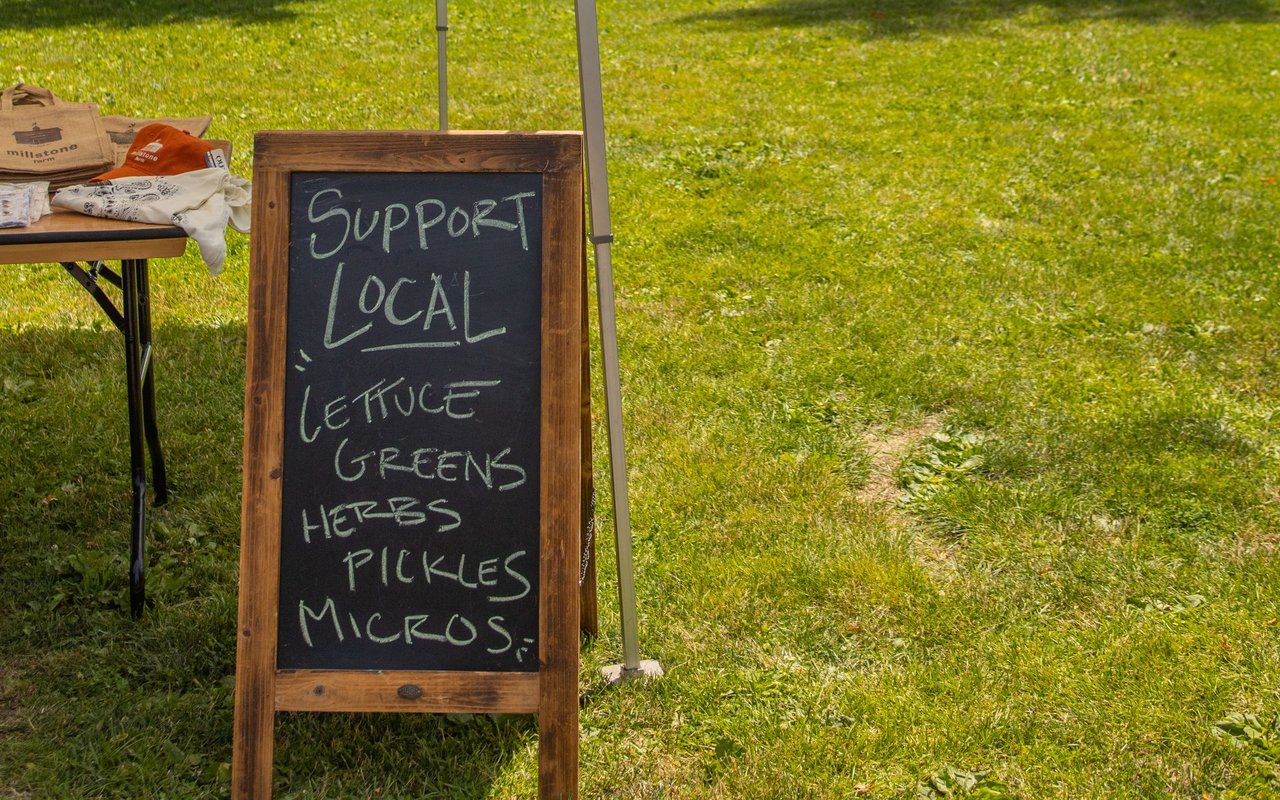 millstone
farm
millstone
farm
SUPPORT
LOCAL
LETTUCE
GREENS
HERBS
PICKLES
MICROS